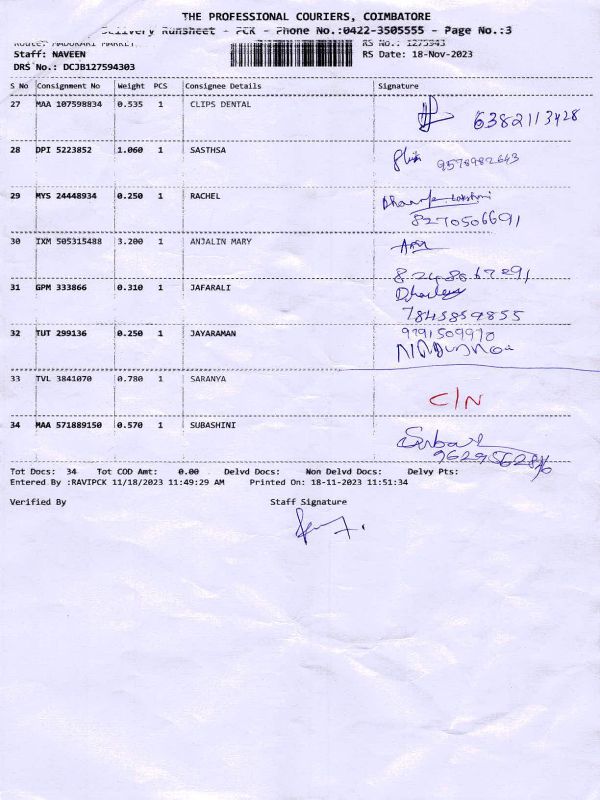 THE PROFESSIONAL COURIERS, COIMBATORE
Delivery Runsheet - PCK - Phone No.:0422-3505555 - Page No.:3
Route: MADUKARI MARKET. RS No.: 1275943
Staff: NAVEEN RS Date: 18-Nov-2023
DRS No.: DCJB127594303
S No Consignment No Weight PCS Consignee Details Signature
27 MAA 107598834 0.535 1 CLIPS DENTAL
6382113428
28 DPI 5223852 1.060 1 SASTHSA
9578982643
29 MYS 24448934 0.250 1 RACHEL
8270506691
30 IXM 505315488 3.200 1 ANJALIN MARY
8248867291
31 GPM 333866 0.310 1 JAFARALI
7845859855
32 TUT 299136 0.250 1 JAYARAMAN 9791509970
33 TVL 3841070 0.780 1 SARANYA
C/N
34 MAA 571889150 0.570 1 SUBASHINI
Tot Docs: 34 Tot COD Amt: 0.00 Delvd Docs: Non Delvd Docs: Delvy Pts:
Entered By :RAVIPCK 11/18/2023 11:49:29 AM Printed On: 18-11-2023 11:51:34
Verified By Staff Signature